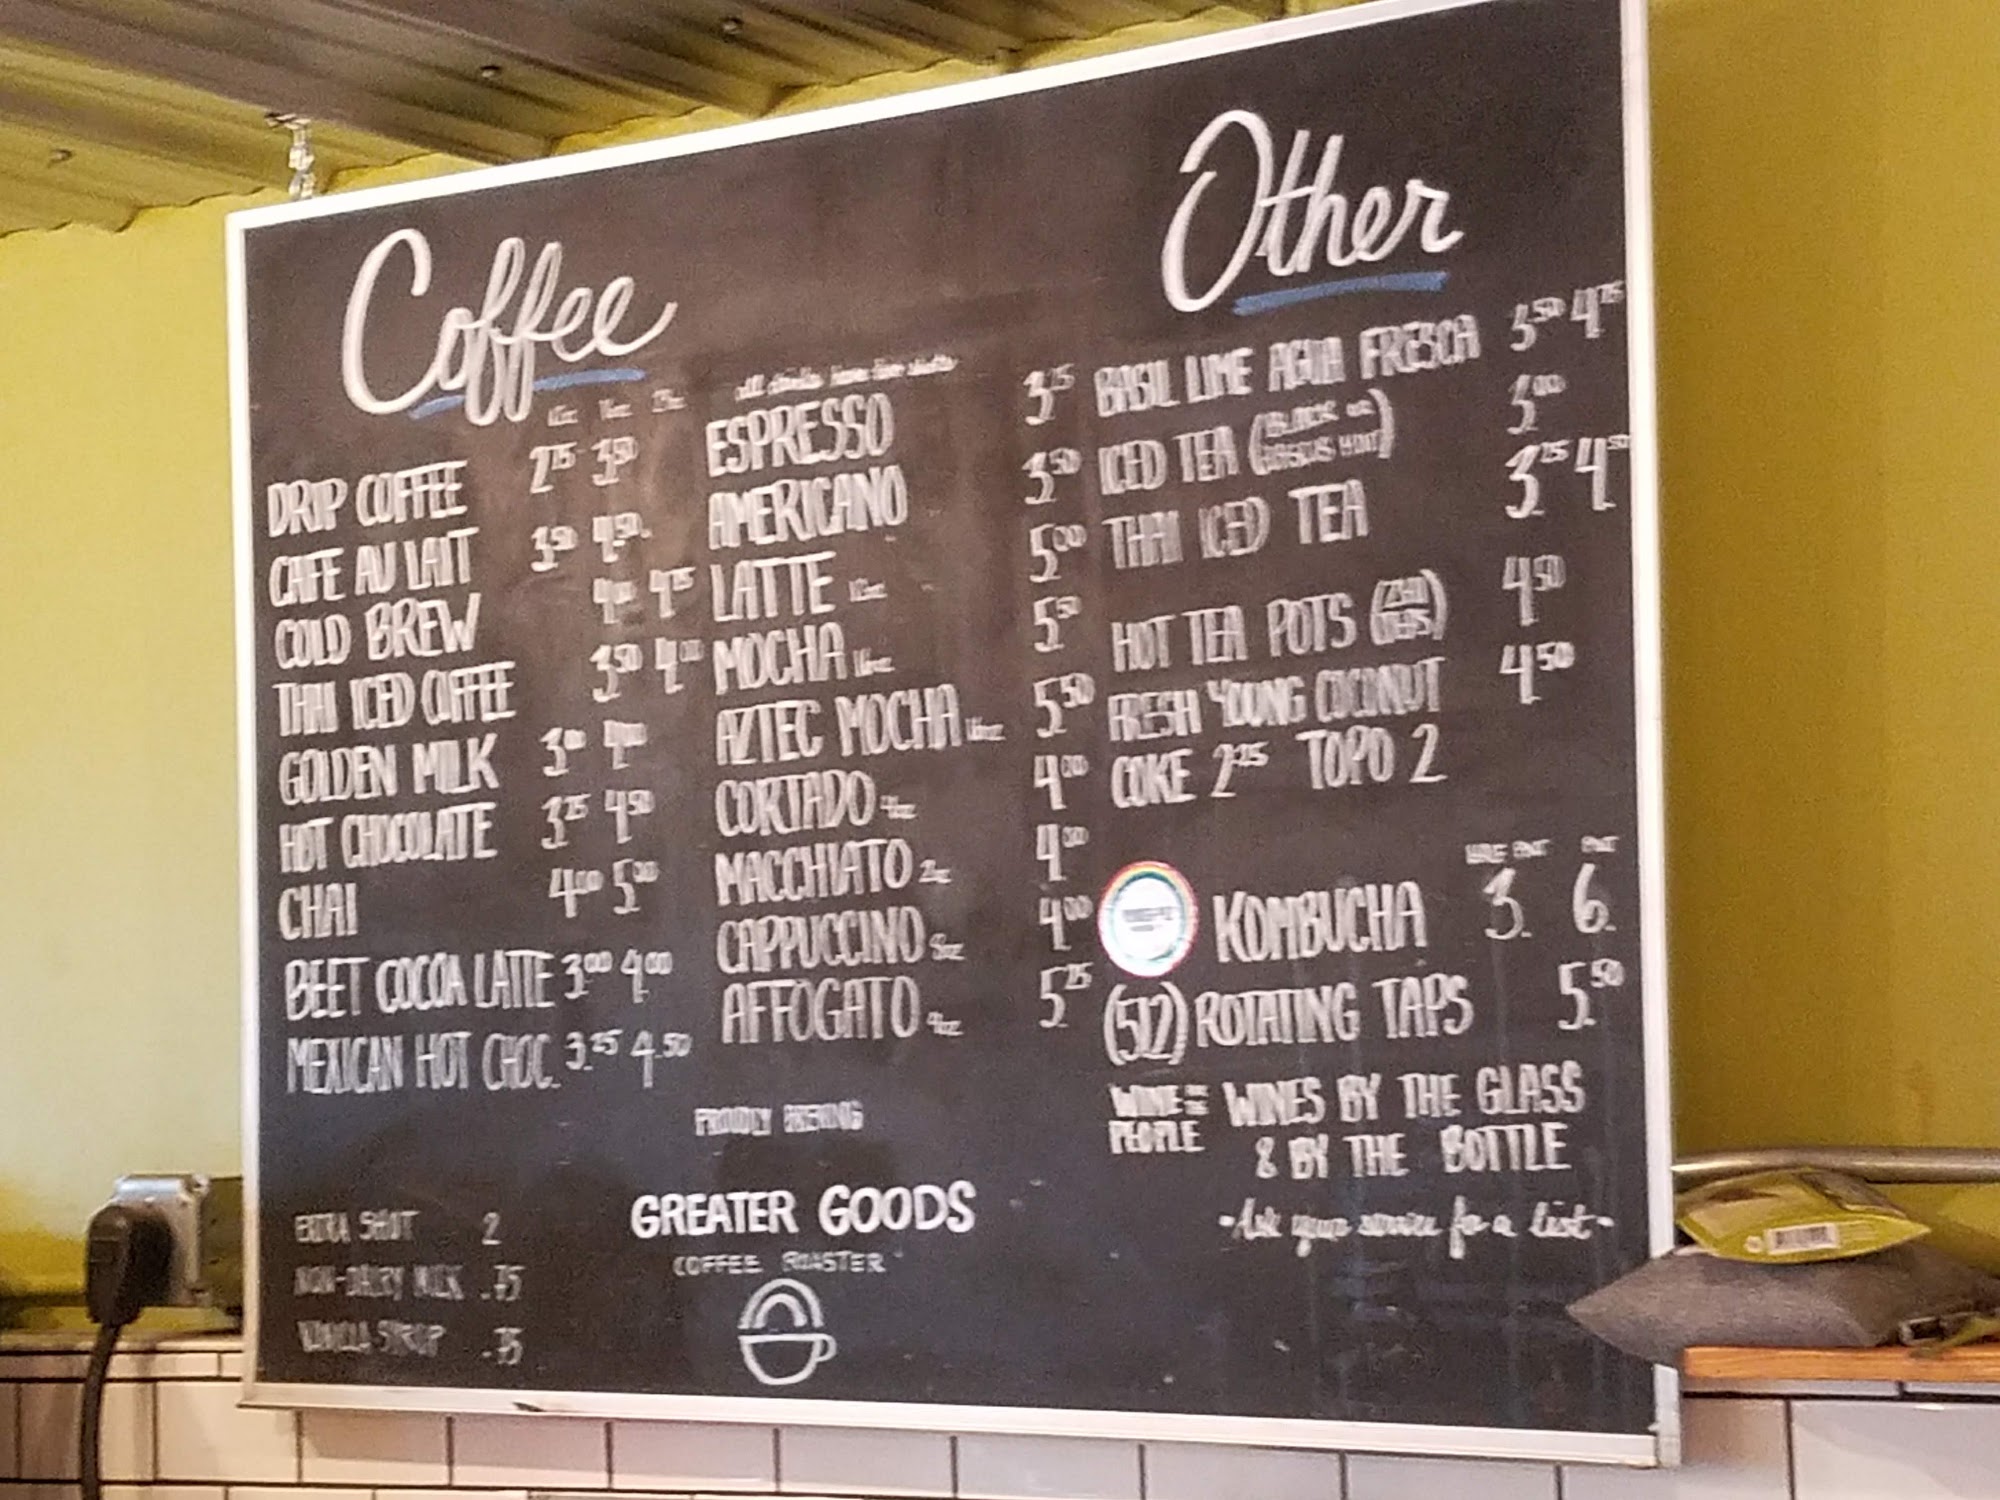 Coffee
12oz 16oz 24oz
DRIP COFFEE 2.75 3.50
CAFE AU LAIT 3.50 4.50
COLD BREW 4.00 4.75
THAI ICED COFFEE 3.50 4.00
GOLDEN MILK 3.00 4.00
HOT CHOCOLATE 3.25 4.50
CHAI 4.00 5.00
BEET COCOA LATTE 3.00 4.00
MEXICAN HOT CHOC. 3.25 4.50
EXTRA SHOT 2
NON-DAIRY MILK .75
VANILLA SYRUP .75
all drinks have two shots
ESPRESSO 3.25
AMERICANO 3.50
LATTE 12oz 5.00
MOCHA 16oz 5.50
AZTEC MOCHA 16oz 5.50
CORTADO 4oz 4.00
MACCHIATO 2oz 4.00
CAPPUCCINO 8oz 4.00
AFFOGATO 4oz 5.25
PROUDLY BREWING
GREATER GOODS
COFFEE ROASTER
Other
BASIL LIME AGUA FRESCA 3.50 4.75
ICED TEA (BLACK OR HIBISCUS MINT) 3.00
THAI ICED TEA 3.25 4.50
HOT TEA POTS 4.50
FRESH YOUNG COCONUT 4.50
COKE 2.25 TOPO 2
HALF PINT PINT
KOMBUCHA 3. 6.
(512) ROTATING TAPS 5.50
WINE FOR THE PEOPLE WINES BY THE GLASS
& BY THE BOTTLE
•Ask your service for a list•